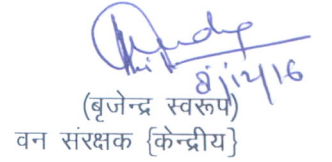 8/12/16
(बृजेन्द्र स्वरूप)
वन संरक्षक {केन्द्रीय}